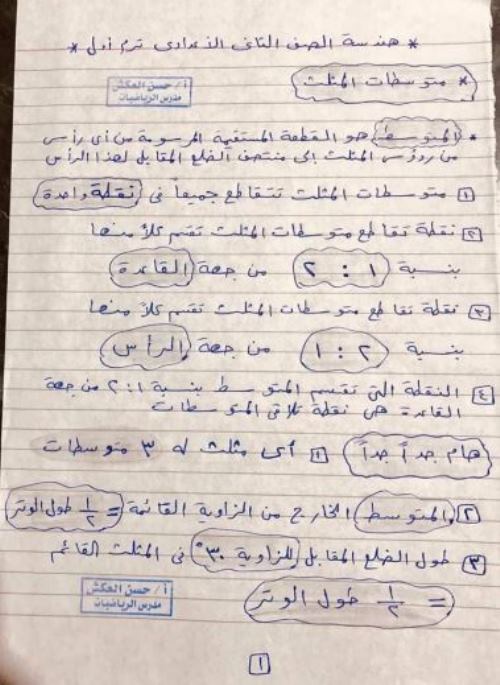 * هندسة الصف الثانى الاعدادى ترم أول *
أ/ حسن العكش
مدرس الرياضيات
* متوسطات المثلث
* المتوسط هو القطعة المستقيمة المرسومة من أى رأس
من رؤوس المثلث إلى منتصف الضلع المقابل لهذا الرأس
١ متوسطات المثلث تتقاطع جميعاً فى نقطة واحدة
٢ نقطة تقاطع متوسطات المثلث تقسم كلاً منها
بنسبة ١ : ٢ من جهة القاعدة
٣ نقطة تقاطع متوسطات المثلث تقسم كلاً منها
بنسبة ٢ : ١ من جهة الرأس
٤ النقطة التى تقسم المتوسط بنسبة ١ : ٢ من جهة
القاعدة هى نقطة تلاقى المتوسطات
هام جداً جداً ١ أى مثلث له ٣ متوسطات
٢ المتوسط الخارج من الزاوية القائمة = ١/٢ طول الوتر
٣ طول الضلع المقابل للزاوية ٣٠° فى المثلث القائم
= ١/٢ طول الوتر
أ/ حسن العكش
مدرس الرياضيات
١